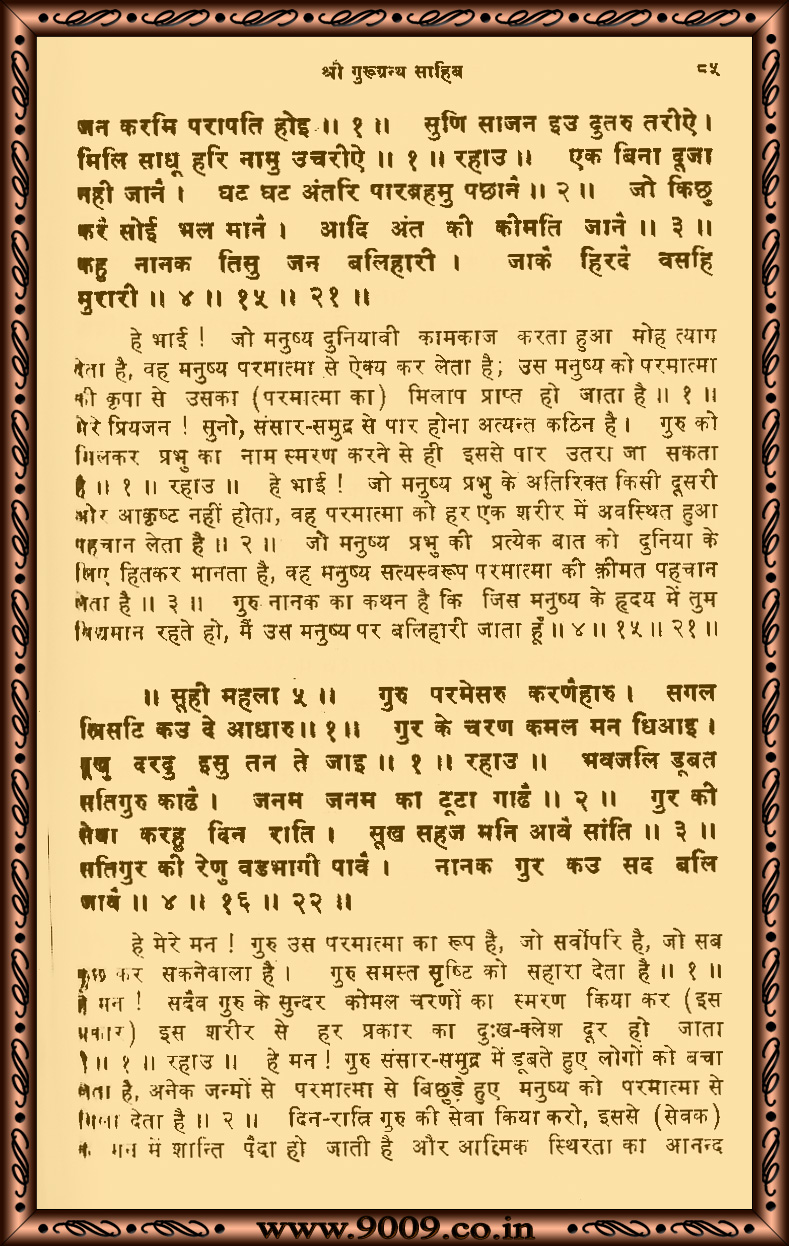 श्री गुरूग्रन्थ साहिब ८५
जन करमि परापति होइ ॥ १ ॥ सुणि साजन इउ दुतरु तरीऐ ।
मिलि साधू हरि नामु उचरीऐ ॥ १ ॥ रहाउ ॥ एक बिना दूजा
नही जानै । घट घट अंतरि पारब्रहमु पछानै ॥ २ ॥ जो किछु
करै सोई भल मानै । आदि अंत की कीमति जानै ॥ ३ ॥
कहु नानक तिसु जन बलिहारी । जाकै हिरदै वसहि
मुरारी ॥ ४ ॥ १५ ॥ २१ ॥
हे भाई ! जो मनुष्य दुनियावी कामकाज करता हुआ मोह त्याग
देता है, वह मनुष्य परमात्मा से ऐक्य कर लेता है; उस मनुष्य को परमात्मा
की कृपा से उसका (परमात्मा का) मिलाप प्राप्त हो जाता है ॥ १ ॥
मेरे प्रियजन ! सुनो, संसार-समुद्र से पार होना अत्यन्त कठिन है । गुरु को
मिलकर प्रभु का नाम स्मरण करने से ही इससे पार उतरा जा सकता
है ॥ १ ॥ रहाउ ॥ हे भाई ! जो मनुष्य प्रभु के अतिरिक्त किसी दूसरी
ओर आकृष्ट नहीं होता, वह परमात्मा को हर एक शरीर में अवस्थित हुआ
पहचान लेता है ॥ २ ॥ जो मनुष्य प्रभु की प्रत्येक बात को दुनिया के
लिए हितकर मानता है, वह मनुष्य सत्यस्वरूप परमात्मा की क़ीमत पहचान
लेता है ॥ ३ ॥ गुरु नानक का कथन है कि जिस मनुष्य के हृदय में तुम
विद्यमान रहते हो, मैं उस मनुष्य पर बलिहारी जाता हूँ ॥ ४ ॥ १५ ॥ २१ ॥
॥ सूही महला ५ ॥ गुरु परमेसरु करणैहारु । सगल
स्रिसटि कउ दे आधारु ॥ १ ॥ गुर के चरण कमल मन धिआइ ।
दूखु दरदु इसु तन ते जाइ ॥ १ ॥ रहाउ ॥ भवजलि डूबत
सतिगुरु काढै । जनम जनम का टूटा गाढै ॥ २ ॥ गुर की
सेवा करहु दिन राति । सूख सहज मनि आवै सांति ॥ ३ ॥
सतिगुर की रेणु वडभागी पावै । नानक गुर कउ सद बलि
जावै ॥ ४ ॥ १६ ॥ २२ ॥
हे मेरे मन ! गुरु उस परमात्मा का रूप है, जो सर्वोपरि है, जो सब
कुछ कर सकनेवाला है । गुरु समस्त सृष्टि को सहारा देता है ॥ १ ॥
हे मन ! सदैव गुरु के सुन्दर कोमल चरणों का स्मरण किया कर (इस
प्रकार) इस शरीर से हर प्रकार का दुःख-क्लेश दूर हो जाता
है ॥ १ ॥ रहाउ ॥ हे मन ! गुरु संसार-समुद्र में डूबते हुए लोगों को बचा
लेता है, अनेक जन्मों से परमात्मा से बिछुड़े हुए मनुष्य को परमात्मा से
मिला देता है ॥ २ ॥ दिन-रात्रि गुरु की सेवा किया करो, इससे (सेवक)
के मन में शान्ति पैदा हो जाती है और आत्मिक स्थिरता का आनन्द
www.9009.co.in